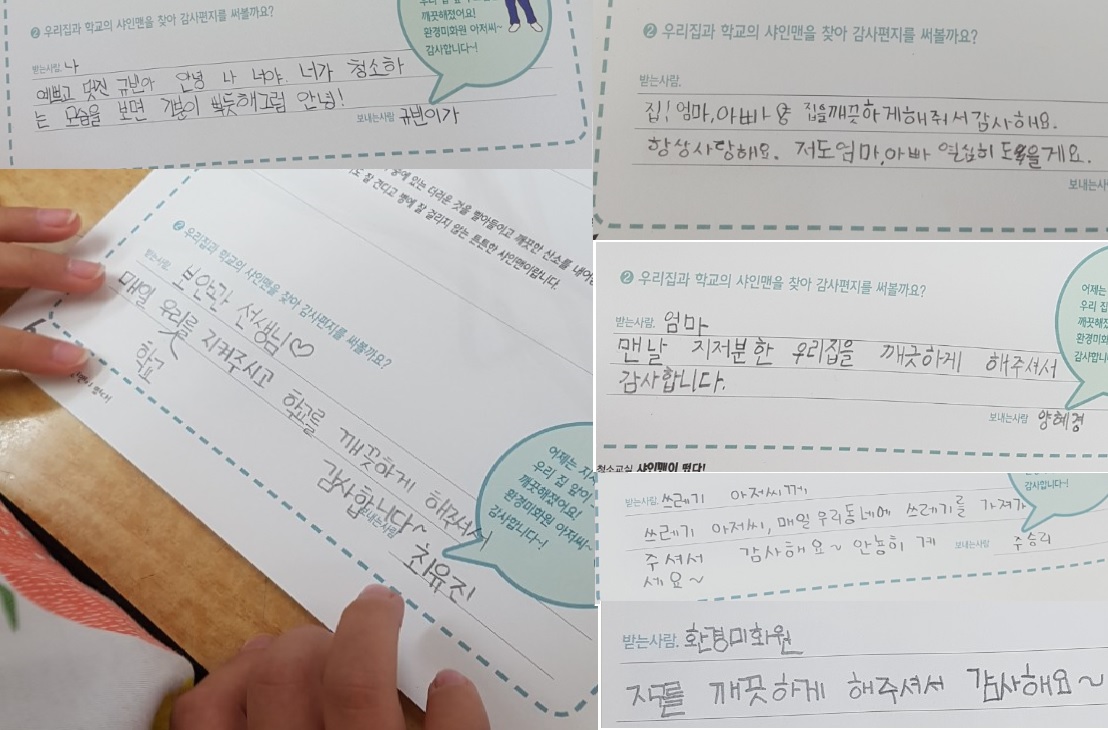 ❷ 우리집과 학교의 샤인맨을 찾아 감사편지를 써볼까요?
깨끗해졌어요!
환경미화원 아저씨~
감사합니다~!
받는사람. 나
예쁘고 멋진 규빈아 안녕 나 너야. 너가 청소하
는 모습을 보면 기분이 뿌듯해그럼 안녕!
보내는사람 규빈이가
❷ 우리집과 학교의 샤인맨을 찾아 감사편지를 써볼까요?
받는사람.
집! 엄마,아빠 집을깨끗하게해줘서감사해요.
항상사랑해요. 저도엄마,아빠 열심히 도울게요.
보내는사
중에 있는 더러운 것을 빨아들이고 깨끗한 산소를 내어
도 잘 견디고 병에 잘 걸리지 않는 튼튼한 샤인맨이랍니다.
❷ 우리집과 학교의 샤인맨을 찾아 감사편지를 써볼까요?
받는사람. 보안관 선생님♡
매일 우리를 지켜주시고 학교를 깨끗하게 해주셔서
학교
감사합니다~
보내는사람 최유진
어제는 지저
우리 집 앞이
깨끗해졌어요!
환경미화원 아저씨~
감사합니다~!
❷ 우리집과 학교의 샤인맨을 찾아 감사편지를 써볼까요?
받는사람. 엄마
맨날 지저분한 우리집을 깨긋하게 해주셔서
감사합니다.
보내는사람 양혜경
어제는
우리 집
깨끗해졌
환경미화
감사합니
청소교실 샤인맨이 떴다!
받는사람. 쓰레기 아저씨께,
쓰레기 아저씨, 매일 우리동네에 쓰레기를 가져가
주셔서 감사해요~ 안녕히 계
세요~
보내는사람 주승리
감사합니다~!
받는사람. 환경미화원
지구를 깨끗하게 해주셔서 감사해요~